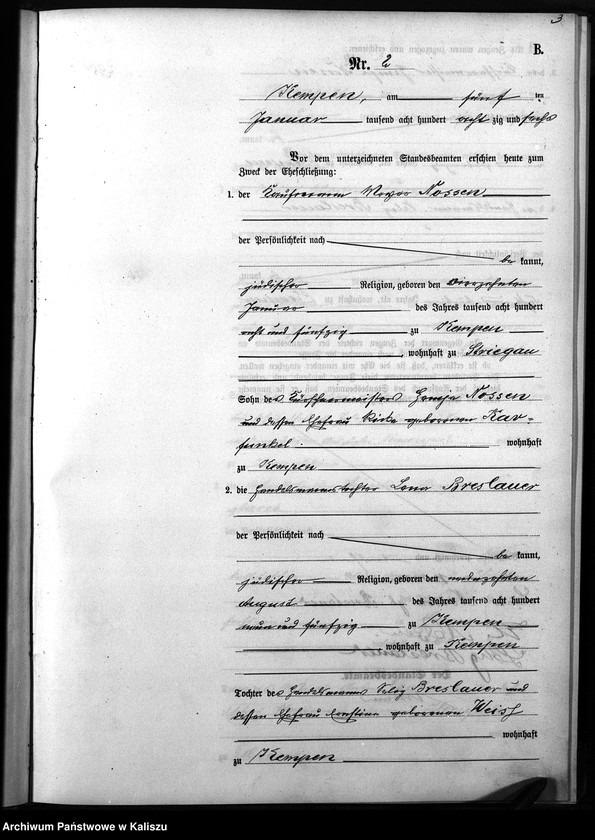 3
B.
Nr. 2
Kempen, am fünf ten
Januar tausend acht hundert acht zig und sechs
Vor dem unterzeichneten Standesbeamten erschien heute zum
Zweck der Eheschließung:
1. der Kaufmann Nossen
der Persönlichkeit nach
be kannt,
jüdischer Religion, geboren den vierzehnten
Januar des Jahres tausend acht hundert
acht und fünfzig zu Kempen
, wohnhaft zu Striegau
Sohn des Kürschnermeisters Nossen
und dessen Ehefrau geborenen Kar-
funkel. wohnhaft
zu Kempen
2. die Handelsmannstochter Lena Breslauer
der Persönlichkeit nach
be kannt,
jüdischer Religion, geboren den neunzehnten
August des Jahres tausend acht hundert
neun und fünfzig zu Kempen
, wohnhaft zu Kempen
Tochter des Handelsmanns Selig Breslauer und
dessen Ehefrau Ernstine geborenen
wohnhaft
zu Kempen
Archiwum Państwowe w Kaliszu